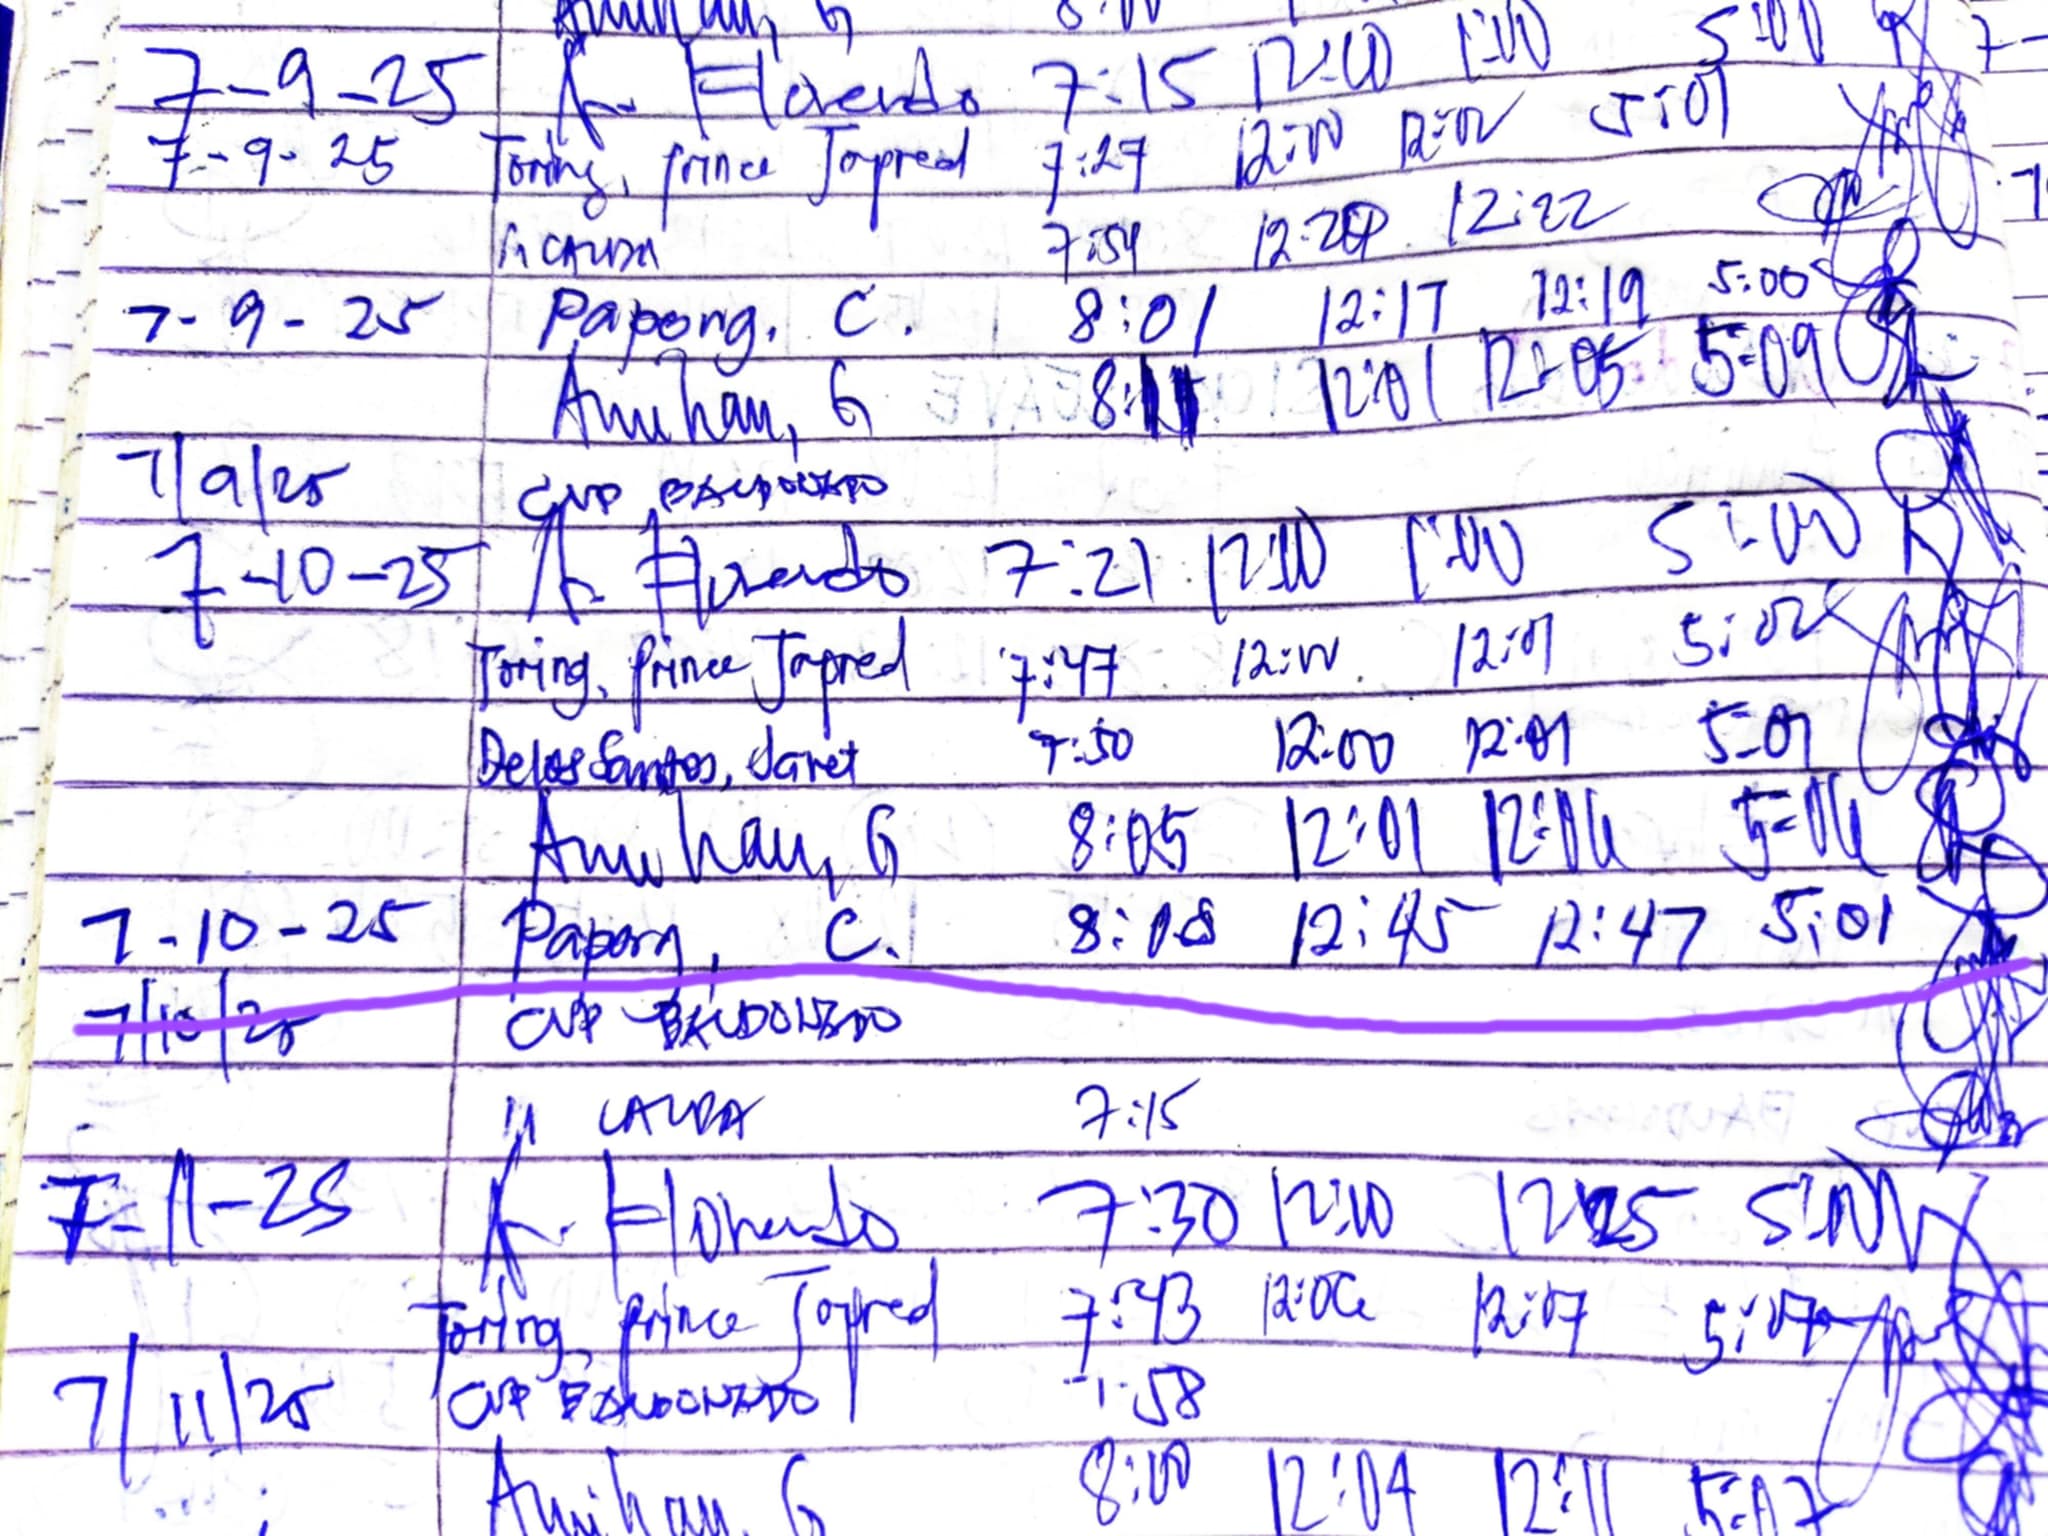 Amihan, G 8:00
7-9-25 A. Florendo 7:15 12:00 1:00 5:00
7-9-25 Toring, Prince Japred 7:27 12:00 12:02 5:01
CALDA 7:54 12:20 12:22
7-9-25 Papong, C. 8:01 12:17 12:19 5:00
Amihan, G 8:11 12:01 12:05 5:09
7/9/25 CVP BALDONADO
7-10-25 A. Florendo 7:21 12:00 1:00 5:00
Toring, Prince Japred 7:47 12:00 12:01 5:02
Delos Santos, Janet 7:50 12:00 12:01 5:01
Amihan, G 8:05 12:01 12:06 5:06
7-10-25 Papong, C. 8:08 12:45 12:47 5:01
7/10/25 CVP BALDONADO
CALDA 7:15
7-11-25 A. Florendo 7:30 12:10 12:25 5:00
Toring, Prince Japred 7:43 12:06 12:07 5:07
7/11/25 CVP BALDONADO 7:58
Amihan, G 8:00 12:04 12:11 5:07